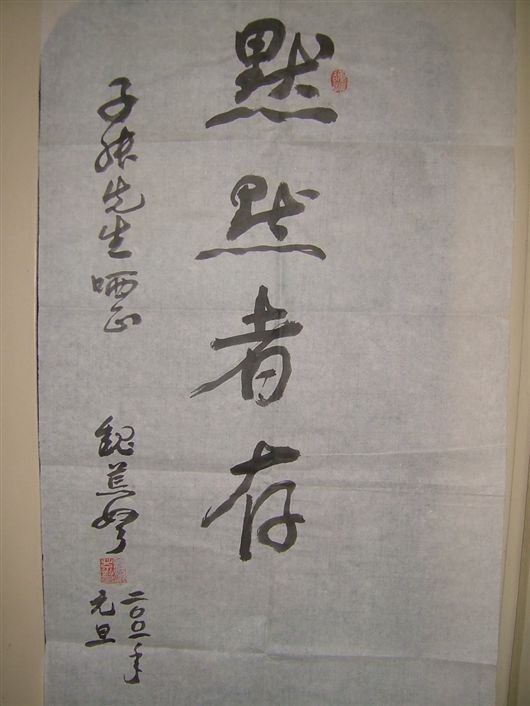 默默者存
子陵先生哂正
魏荒弩
二〇〇一年
元旦